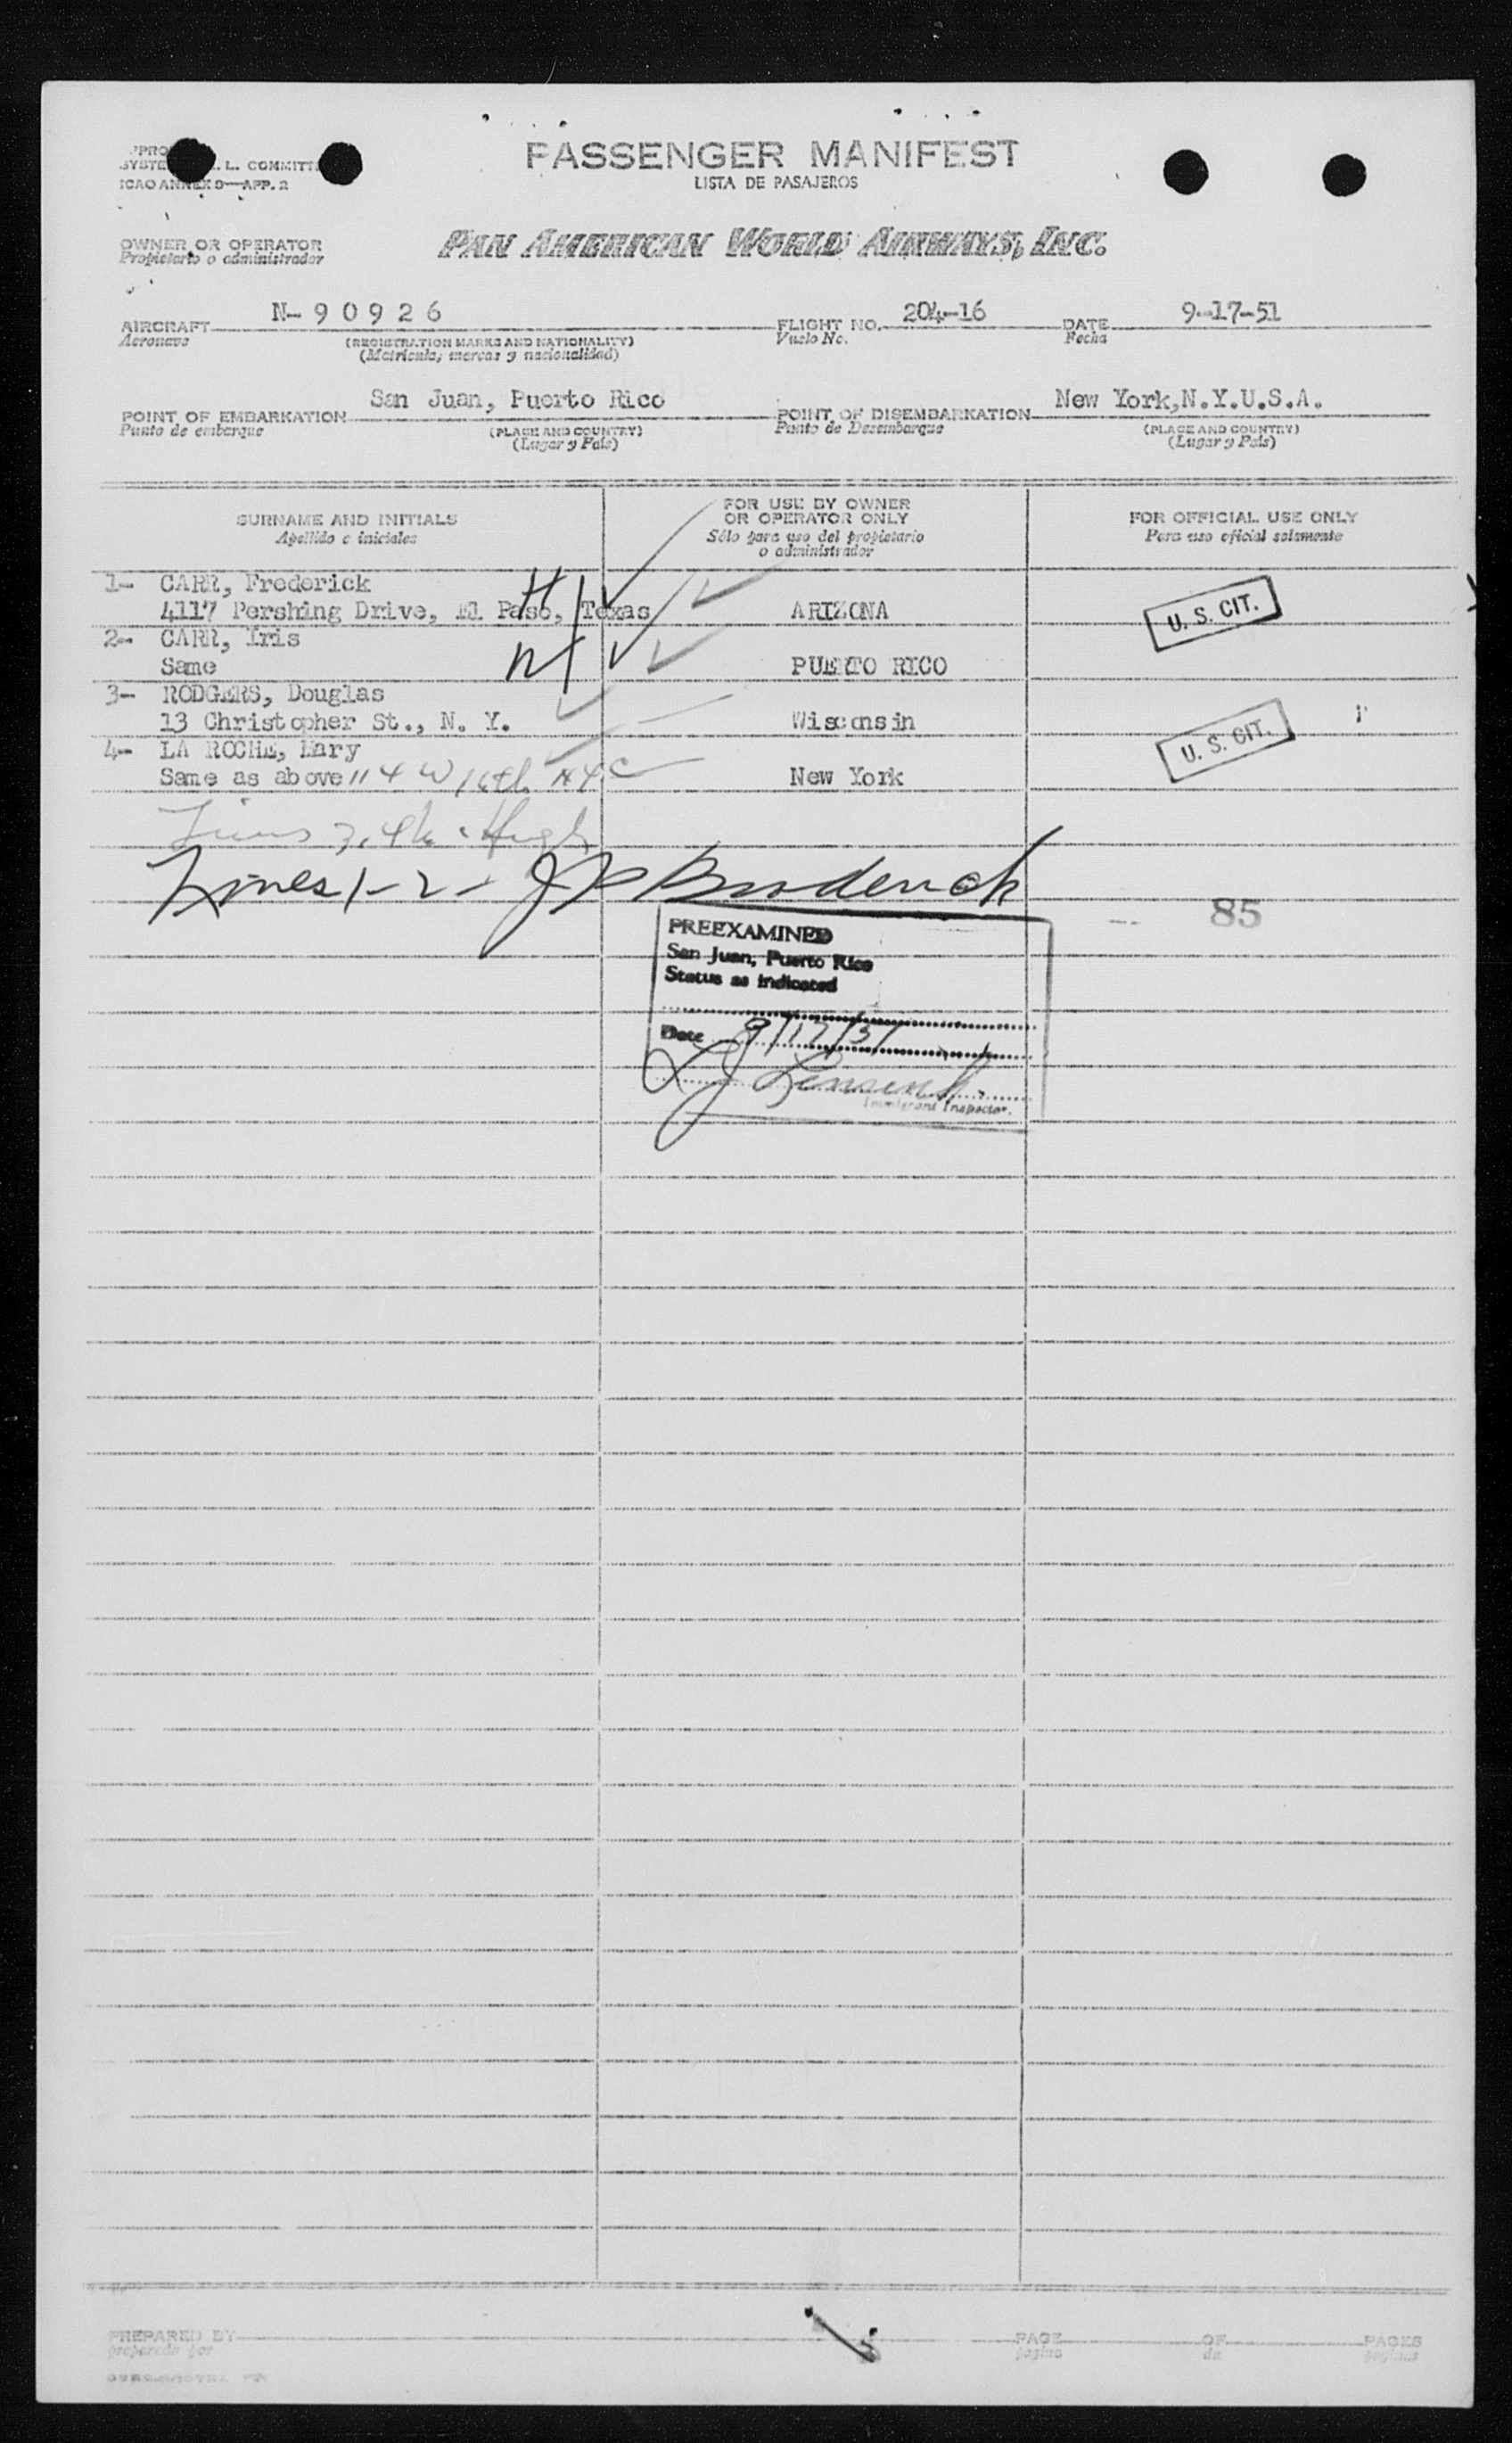 PASSENGER MANIFEST
LISTA DE PASAJEROS
L. COMMITT
ICAO ANNEX 9—APP. 2
OWNER OR OPERATOR
Propietario o administrador
PAN AMERICAN WORLD AIRWAYS, INC.
AIRCRAFT N-90926 FLIGHT NO. 204-16 DATE 9-17-51
Aeronave (REGISTRATION MARKS AND NATIONALITY) Vuelo No. Fecha
(Matricula, marcas y nacionalidad)
POINT OF EMBARKATION San Juan, Puerto Rico POINT OF DISEMBARKATION New York,N.Y.U.S.A.
Punto de embarque (PLACE AND COUNTRY) Punto de Desembarque (PLACE AND COUNTRY)
(Lugar y País) (Lugar y País)
SURNAME AND INITIALS
Apellido e iniciales
FOR USE BY OWNER
OR OPERATOR ONLY
Sólo para uso del propietario
o administrador
FOR OFFICIAL USE ONLY
Para uso oficial solamente
1- CARR, Frederick
4117 Pershing Drive, El Paso, Texas ARIZONA U. S. CIT.
2- CARR, Iris
Same PUERTO RICO
3- RODGERS, Douglas
13 Christopher St., N. Y. Wisconsin U. S. CIT.
4- LA ROCHE, Mary
Same as above 114 W 16th NYC New York
Lines 1-2- J P Broderick
85
PREEXAMINED
San Juan, Puerto Rico
Status as indicated
Date 9/17/51
L J
Immigrant Inspector.
PREPARED BY PAGE OF PAGES
preparado por página de páginas